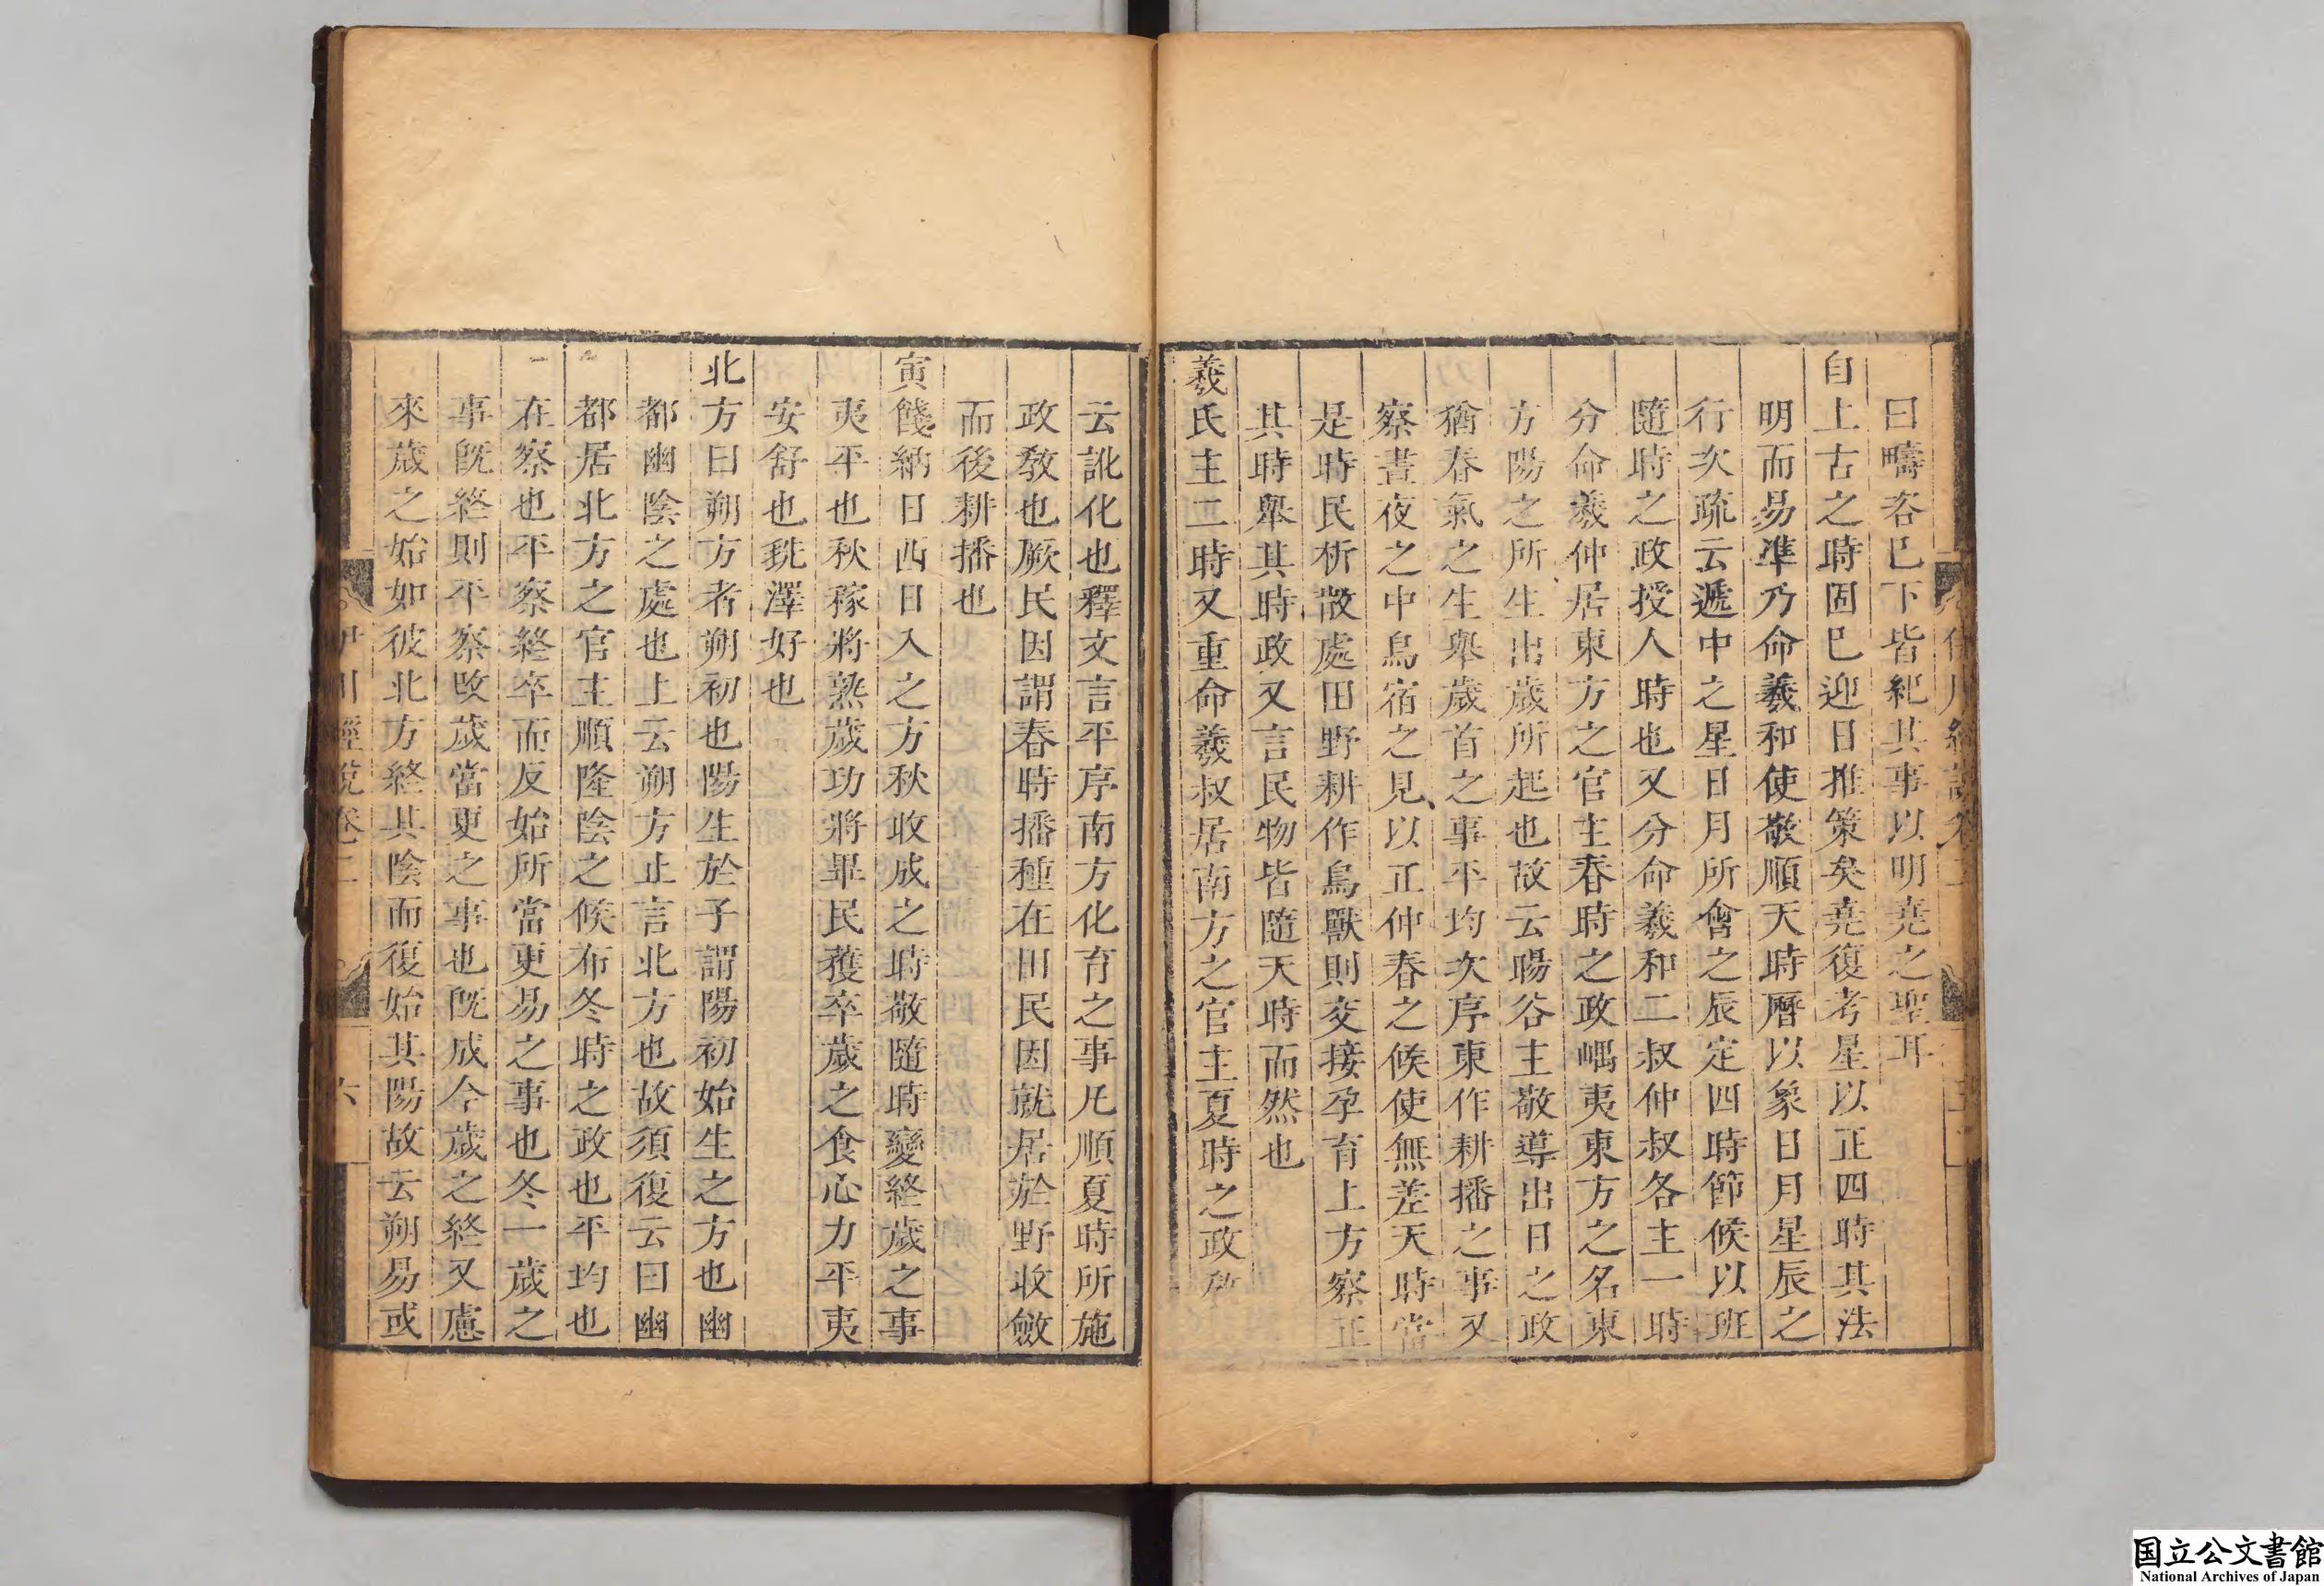 曰疇咨已下皆紀其事以明堯之聖耳
自上古之時固已迎日推策矣堯復考星以正四時其法
明而易準乃命羲和使敬順天時曆以象日月星辰之
行次疏云遞中之星日月所會之辰定四時節候以班
隨時之政授人時也又分命羲和二叔仲叔各主一時
分命羲仲居東方之官主春時之政嵎夷東方之名東
方陽之所生出歲所起也故云暘谷主敬導出日之政
猶春氣之生舉歲首之事平均次序東作耕播之事又
察晝夜之中鳥宿之見以正仲春之候使無差天時當
是時民析散處田野耕作鳥獸則交接孕育上方察正
其時舉其時政又言民物皆隨天時而然也
羲氏主二時又重命羲叔居南方之官主夏時之政
云訛化也釋文言平序南方化育之事凡順夏時所施
政教也厥民因謂春時播種在田民因就居於野收斂
而後耕播也
寅餞納日西日入之方秋收成之時敬隨時變終歲之事
夷平也秋稼將熟歲功將畢民穫卒歲之食心力平夷
安舒也毨澤好也
北方曰朔方者朔初也陽生於子謂陽初始生之方也幽
都幽陰之處也上云朔方止言北方也故須復云曰幽
都居北方之官主順隆陰之候布冬時之政也平均也
在察也平察終卒而反始所當更易之事也冬一歲之
事既終則平察改歲當更之事也既成今歲之終又慮
來歲之始如彼北方終其陰而復始其陽故云朔易或
伊川經說卷二
六
国立公文書館
National Archives of Japan